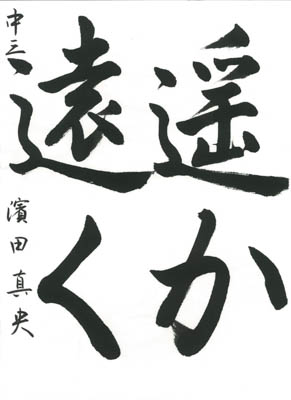 遥か
遠く
中三 濱田真央